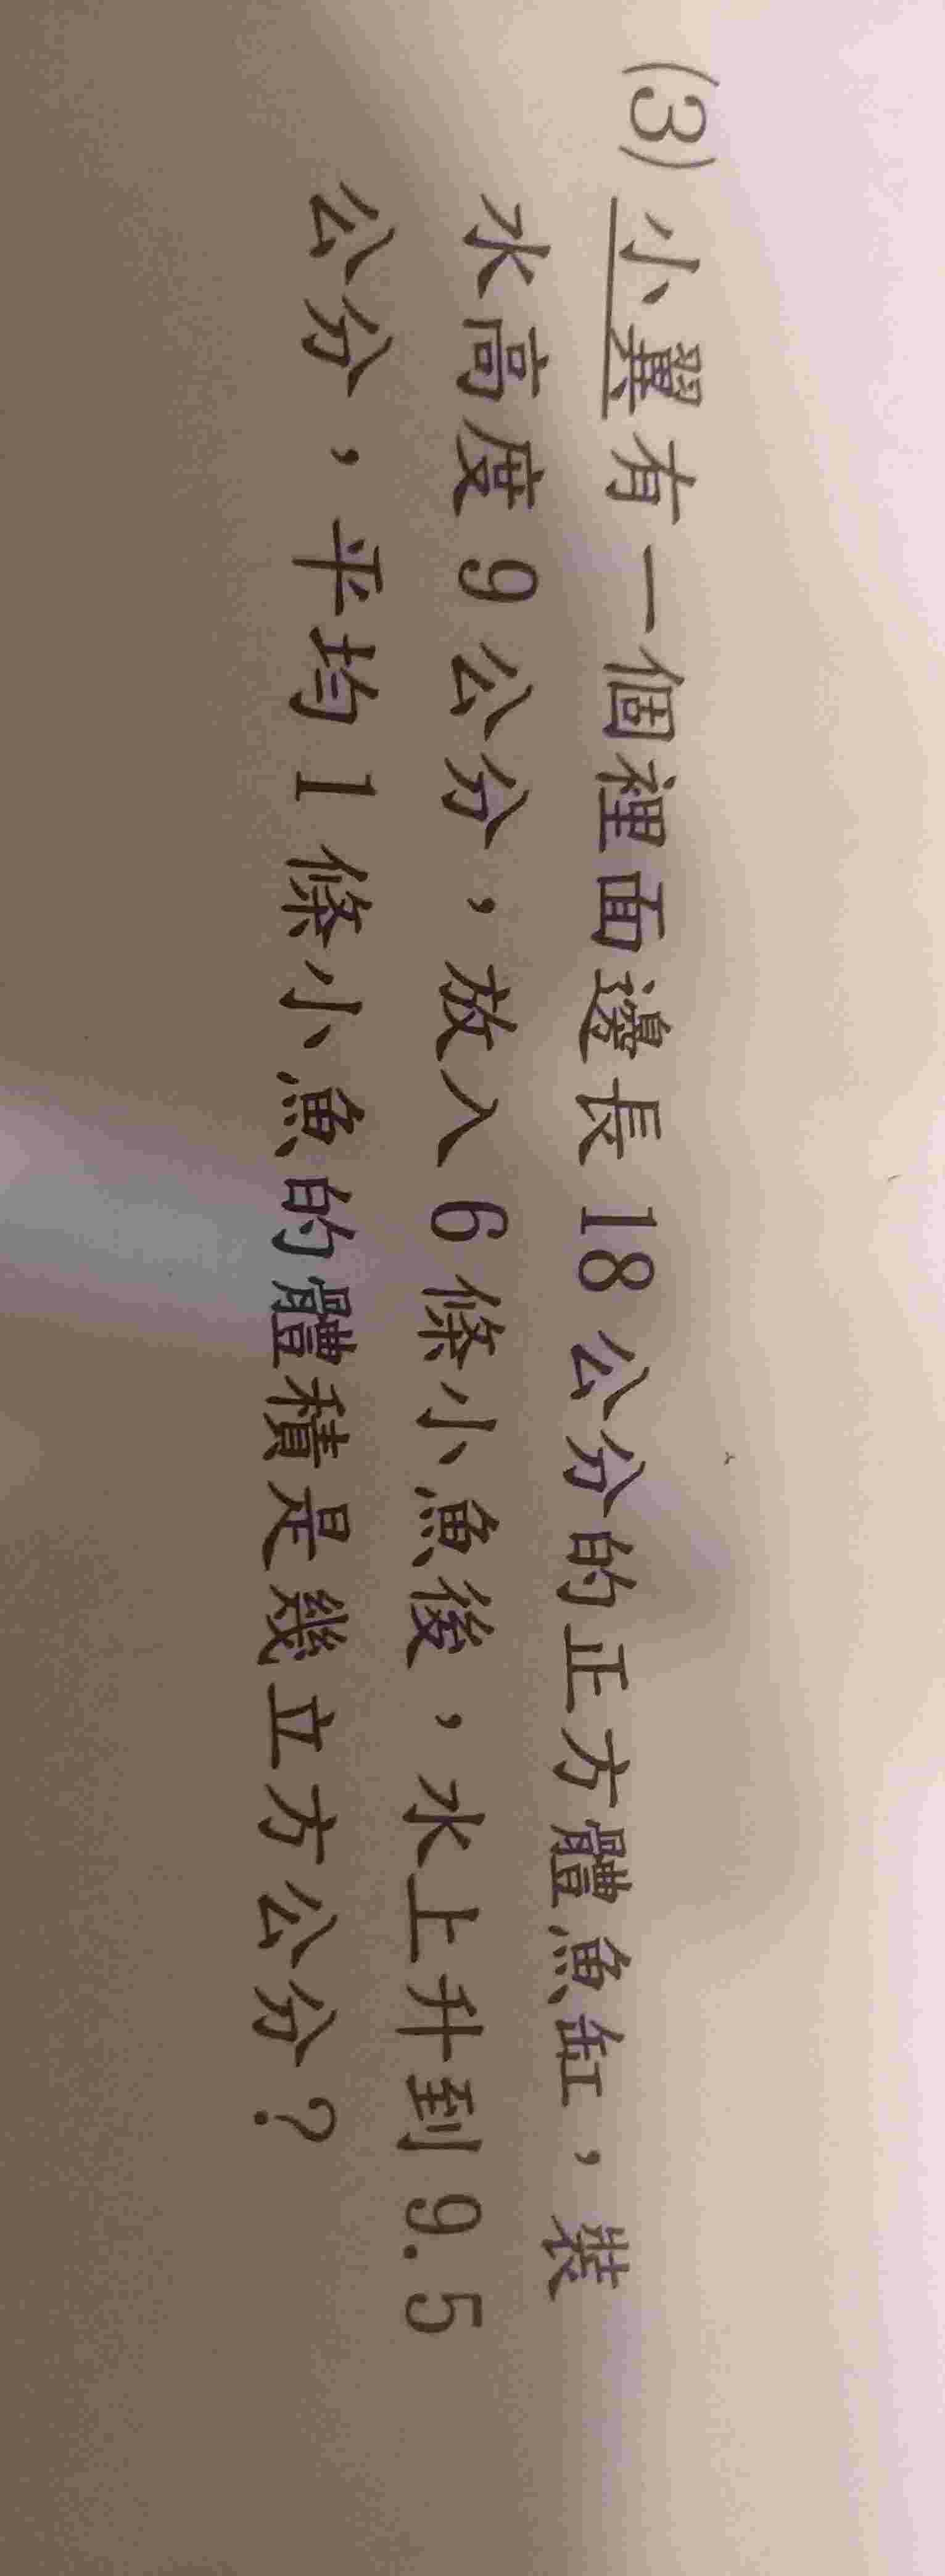 (3) 小翼有一個裡面邊長 18 公分的正方體魚缸，裝
水高度 9 公分，放入 6 條小魚後，水上升到 9.5
公分，平均 1 條小魚的體積是幾立方公分？